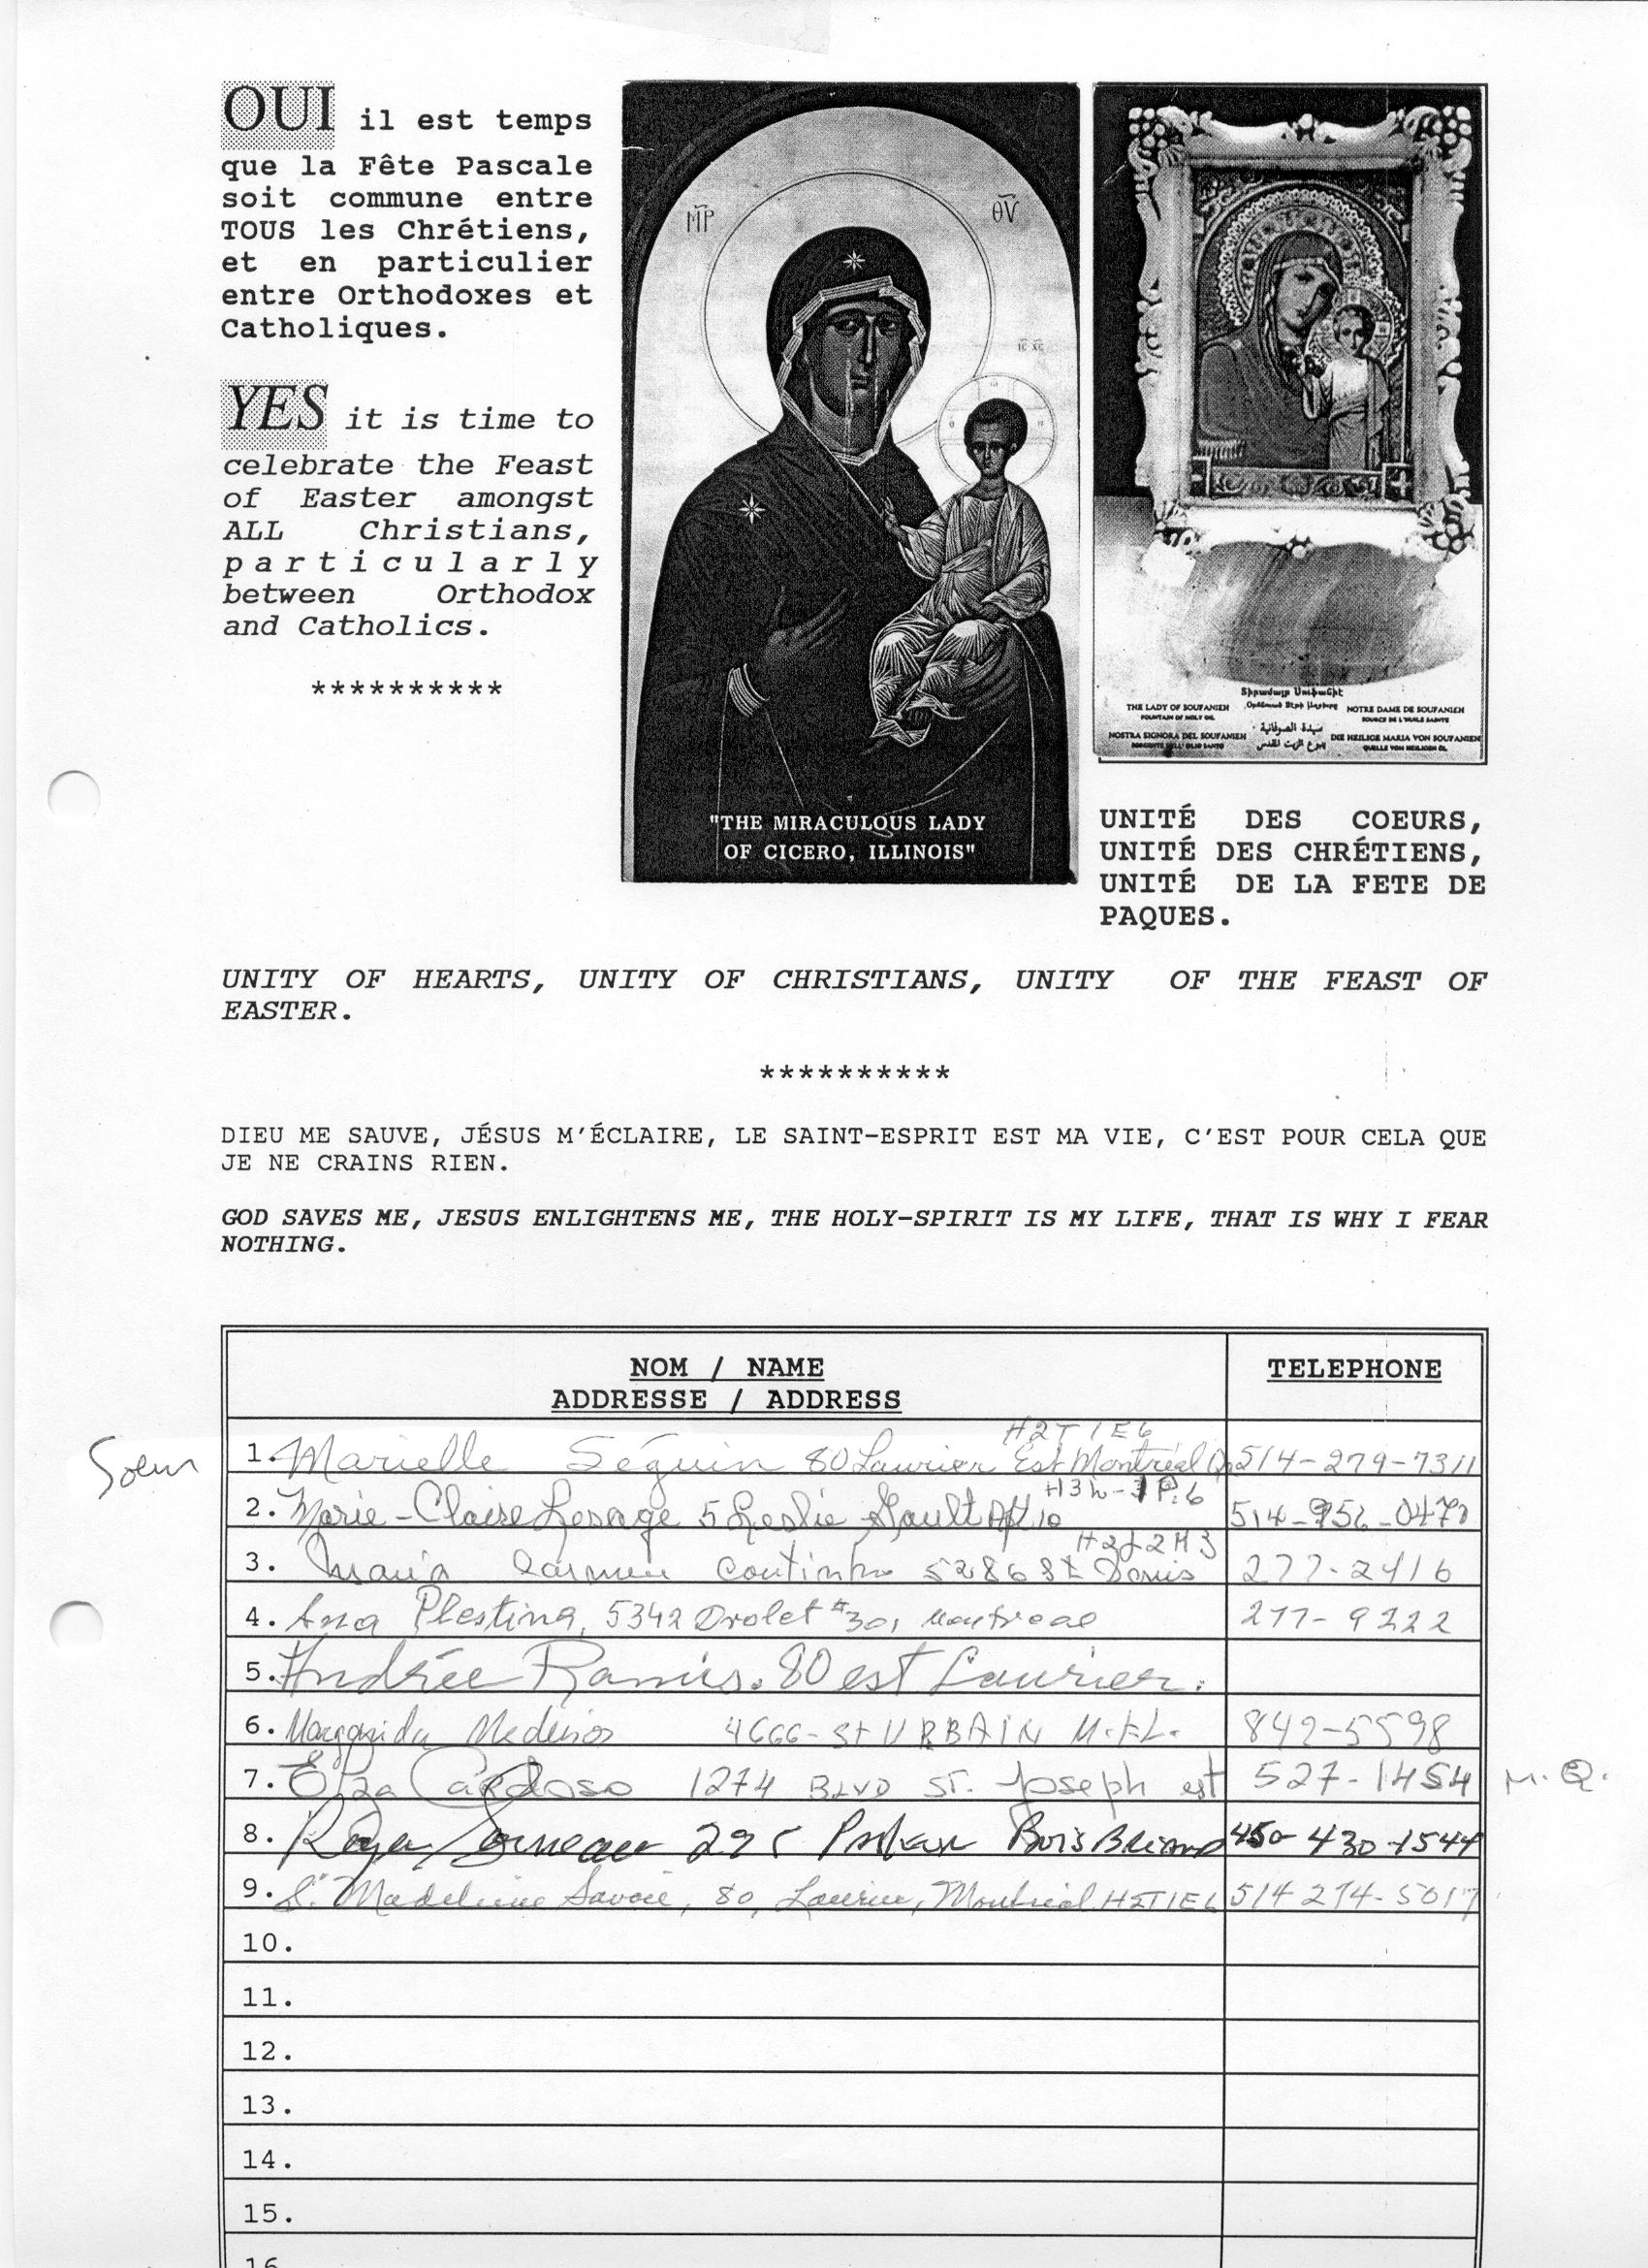 OUI il est temps
que la Fête Pascale
soit commune entre
TOUS les Chrétiens,
et en particulier
entre Orthodoxes et
Catholiques.
YES it is time to
celebrate the Feast
of Easter amongst
ALL Christians,
particularly
between Orthodox
and Catholics.
**********
"THE MIRACULOUS LADY
OF CICERO, ILLINOIS"
THE LADY OF SOUFANIEH
FOUNTAIN OF HOLY OIL
NOTRE DAME DE SOUFANIEH
SOURCE DE L'HUILE SAINTE
NOSTRA SIGNORA DEL SOUFANIEH
سيدة الصوفانية
ينبوع الزيت المقدس
DIE HEILIGE MARIA VON SOUFANIEH
QUELLE VON HEILIGEN ÖL
UNITÉ DES COEURS,
UNITÉ DES CHRÉTIENS,
UNITÉ DE LA FETE DE
PAQUES.
UNITY OF HEARTS, UNITY OF CHRISTIANS, UNITY OF THE FEAST OF
EASTER.
**********
DIEU ME SAUVE, JÉSUS M'ÉCLAIRE, LE SAINT-ESPRIT EST MA VIE, C'EST POUR CELA QUE
JE NE CRAINS RIEN.
GOD SAVES ME, JESUS ENLIGHTENS ME, THE HOLY-SPIRIT IS MY LIFE, THAT IS WHY I FEAR
NOTHING.
NOM / NAME
ADDRESSE / ADDRESS
TELEPHONE
H2T 1E6
Soeur 1. Marielle Séguin 80 Laurier Est Montréal 514-279-7311
2. Marie-Claire Lesage 5 Leslie Gault Apt 10
3. Maria Carmen Coutinho 5286 St Denis 277-2416
H2J 2M3
4. Ana Plestina, 5342 Drolet #301 Montreal 277-9222
5. Andrée Ramis. 80 est Laurier.
6. Margarida Medeiros 4666-St URBAIN M.t.L. 849-5598
7. Elza Cardoso 1274 BLVD ST. Joseph est 527-1454 M.Q.
8. Roger 295 Bois Briand 450-430-1544
9. Sr Madeleine Savoie, 80, Laurier, Montréal H2T1E6 514 274-5017
10.
11.
12.
13.
14.
15.
16.